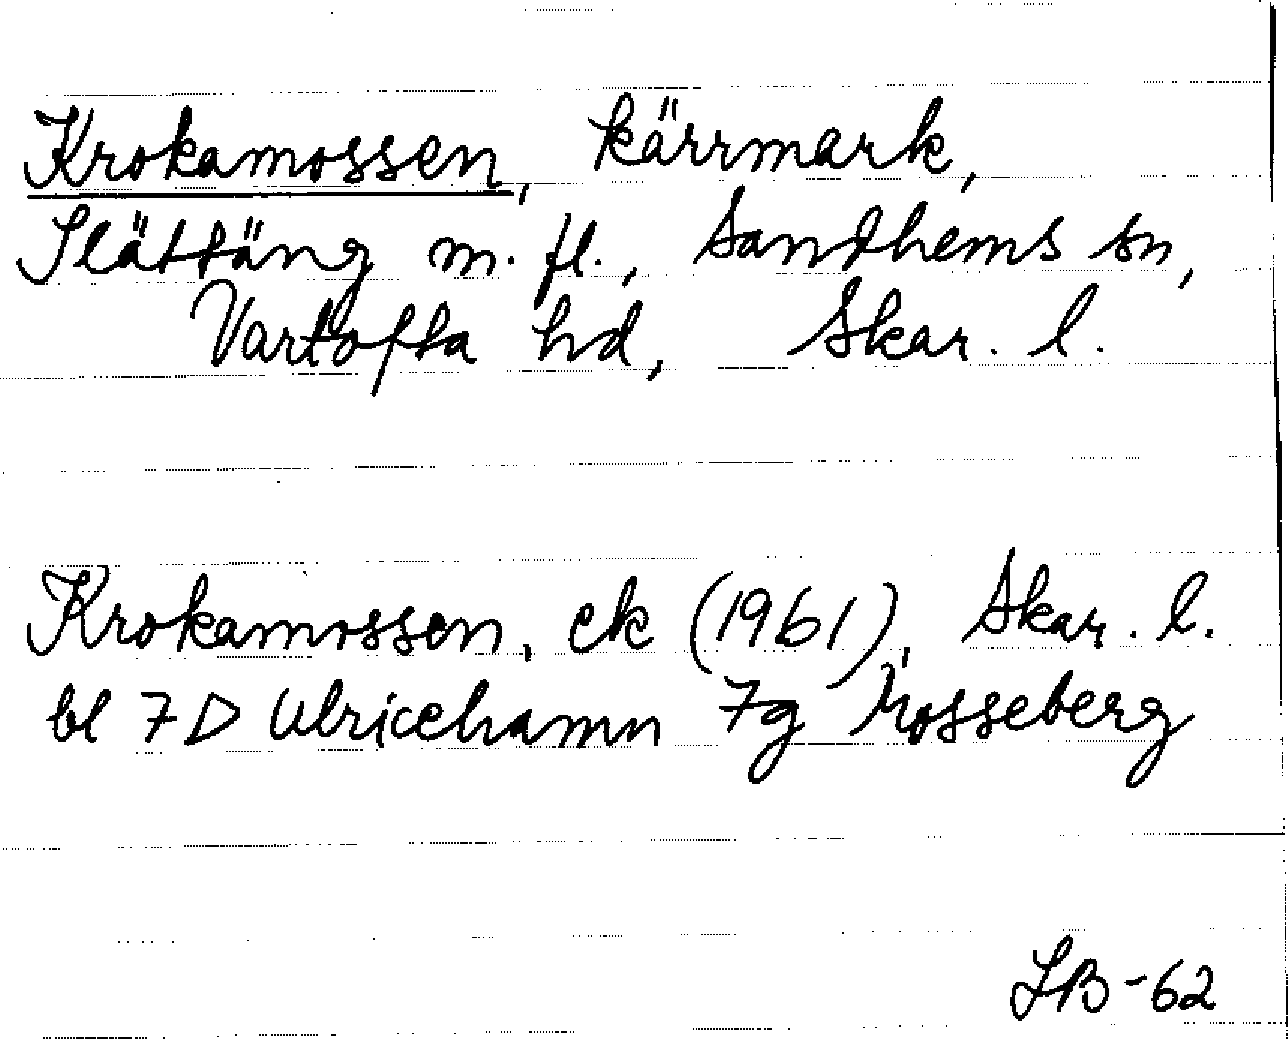 Krokamossen, kärrmark,
Slättäng m. fl., Sandhems sn,
Vartofta hd, Skar. l.
Krokamossen, ek (1961), Skar. l.
bl 7D Ulricehamn 7g Mosseberg
LB-62